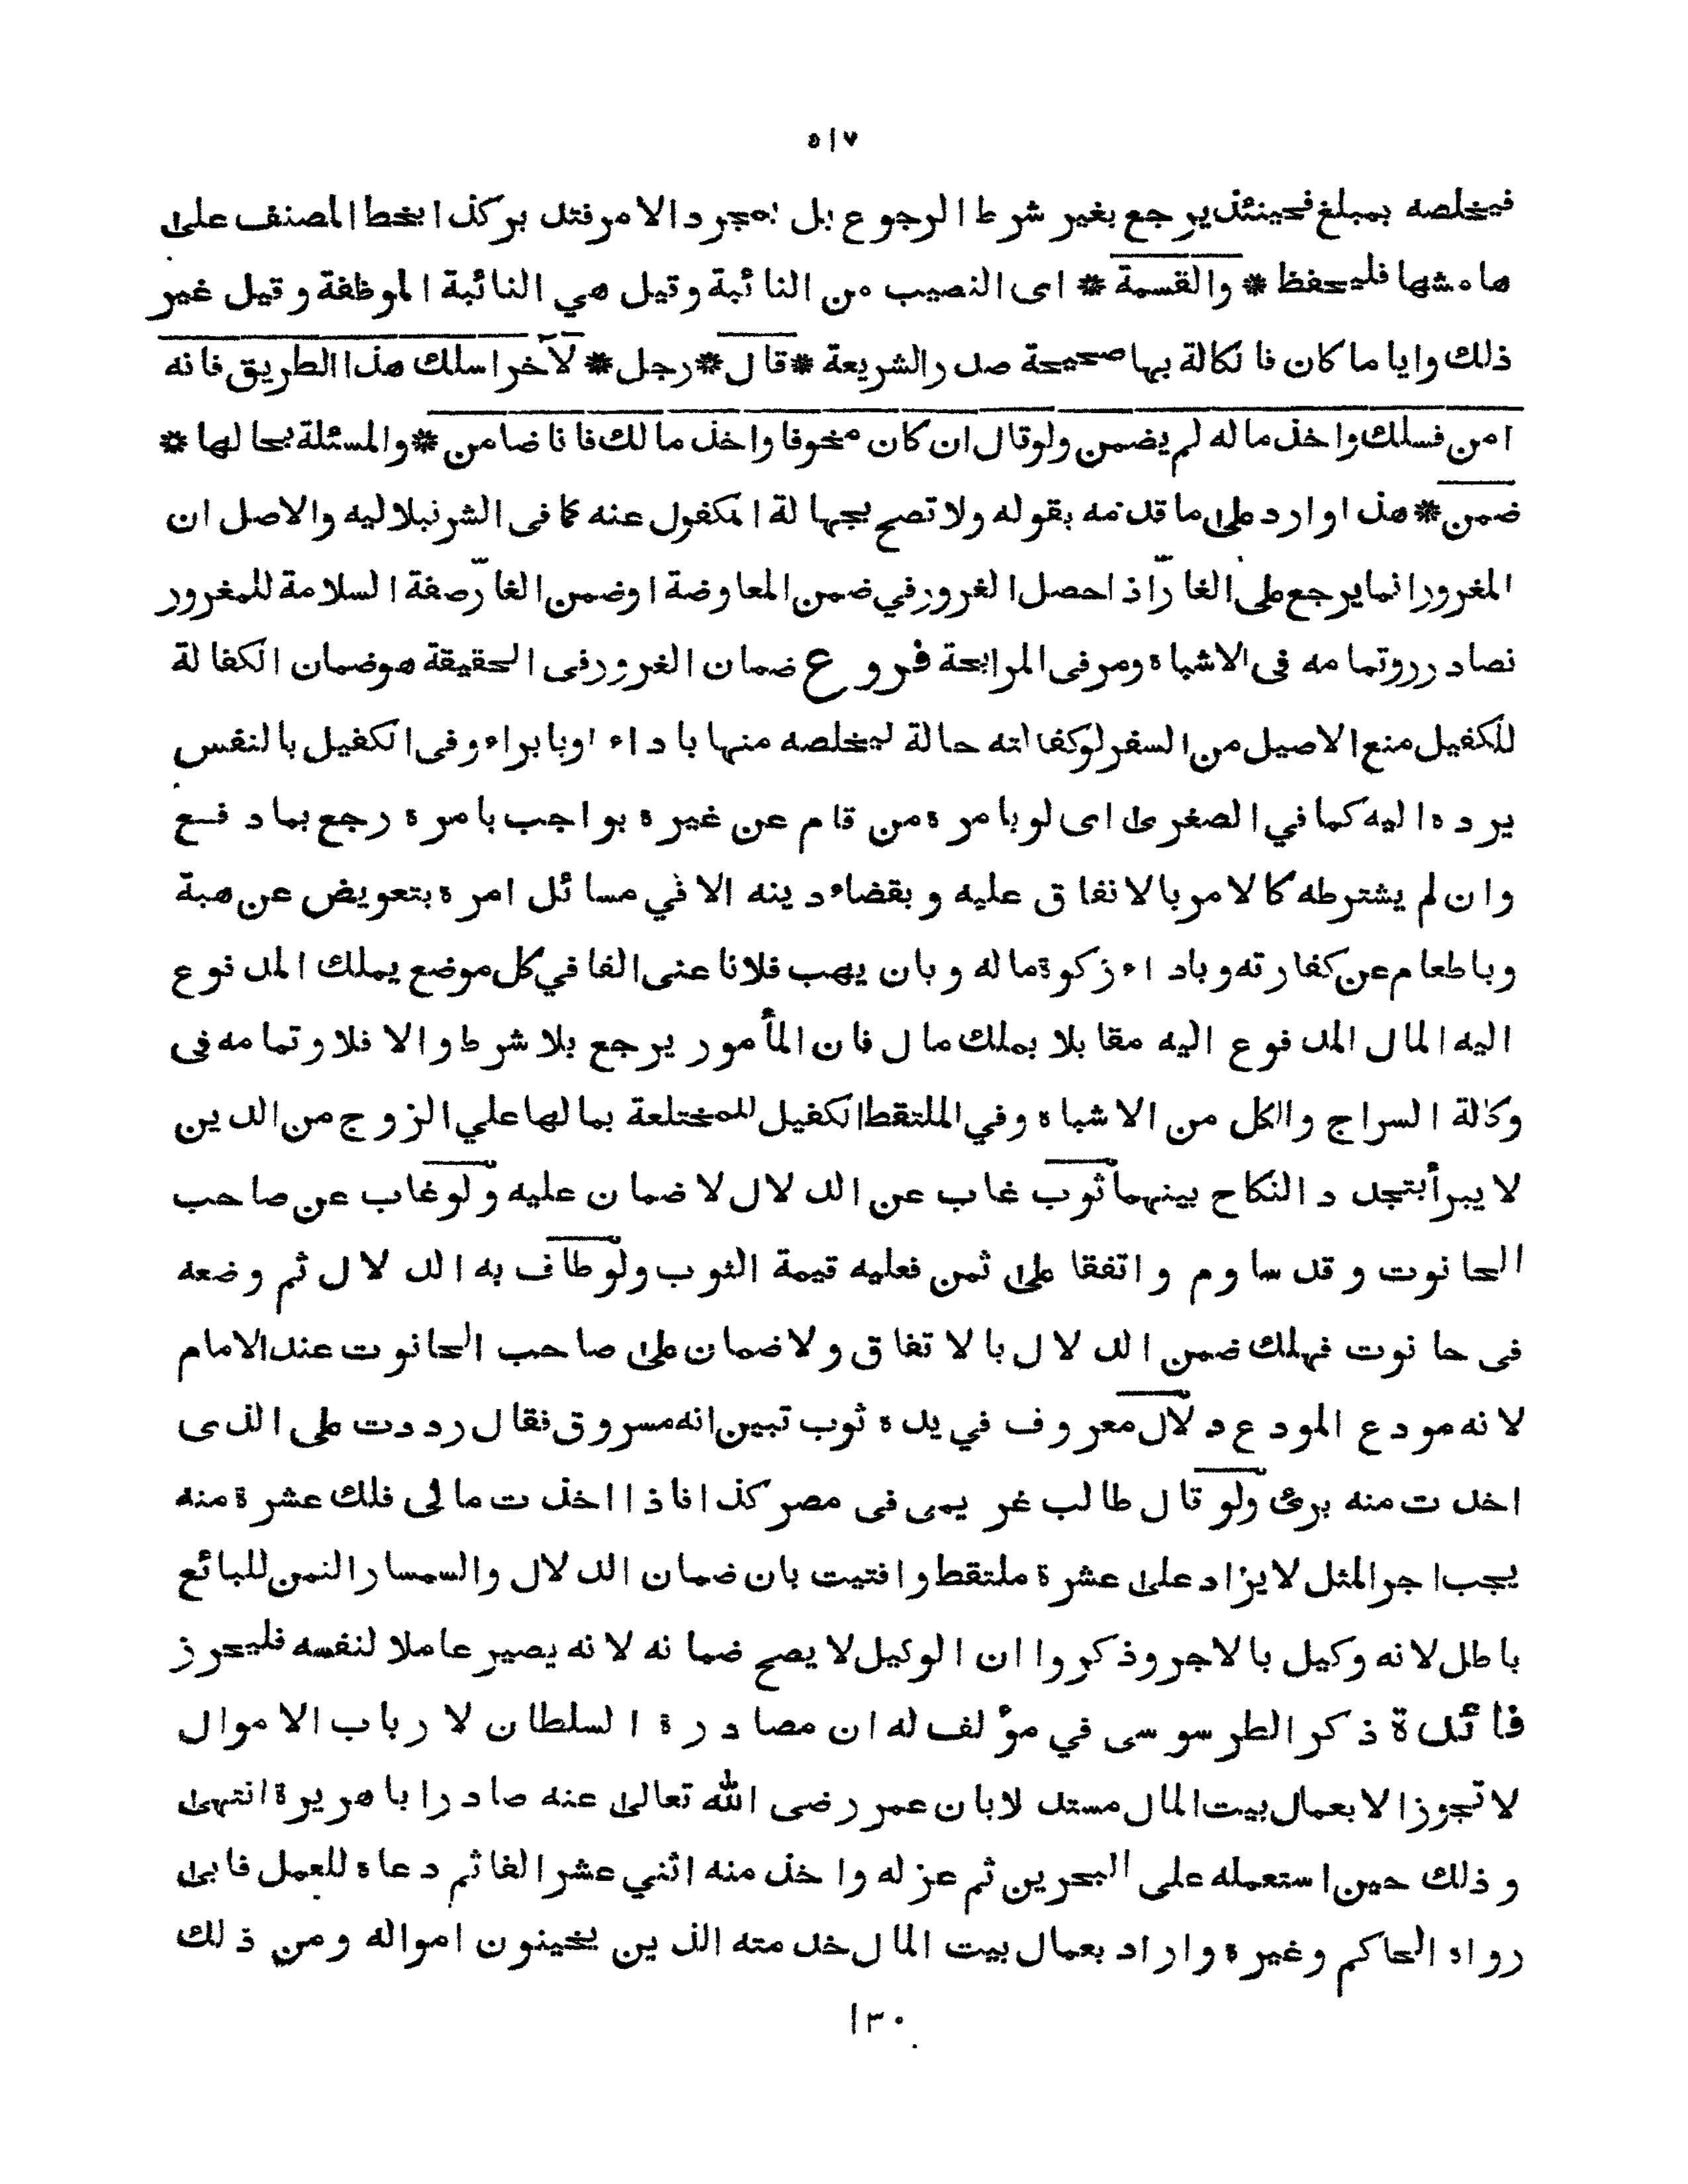 ٥١٧
فيخلصه بمبلغ فحينئذ يرجع بغير شرط الرجوع بل بمجرد الامر فتدبر كذا بخط المصنف على
هامشها فليحفظ * والقسمة * اى النصيب من النائبة وقيل هي النائبة الموظفة وقيل غير
ذلك وايا ما كان فالكفالة بها صحيحة صدر الشريعة * قال * رجل * لآخر اسلك هذا الطريق فانه
امن فسلك واخذ ماله لم يضمن ولو قال ان كان مخوفا واخذ مالك فانا ضامن * والمسئلة بحالها *
ضمن * هذا وارد على ما قدمه بقوله ولا تصح بجهالة المكفول عنه كما فى الشرنبلاليه والاصل ان
المغرور انما يرجع على الغارّ اذا حصل الغرور في ضمن المعاوضة او ضمن الغارّ صفة السلامة للمغرور
نصا درر وتمامه فى الاشباه ومر فى المرابحة فروع ضمان الغرور فى الحقيقة هو ضمان الكفالة
للكفيل منع الاصيل من السفر لو كفالته حالة ليخلصه منها باداء او بابراء وفى الكفيل بالنفس
يرده اليه كما في الصغرى اى لو بامره من قام عن غيره بواجب بامره رجع بما دفع
وان لم يشترطه كالامر بالانفاق عليه وبقضاء دينه الا في مسائل امره بتعويض عن هبة
وباطعام عن كفارته وباداء زكوة ماله وبان يهب فلانا عنى الفا في كل موضع يملك المدفوع
اليه المال المدفوع اليه مقابلا بملك مال فان المأمور يرجع بلا شرط والا فلا وتمامه فى
وكالة السراج والكل من الاشباه وفي الملتقط الكفيل للمختلعة بمالها علي الزوج من الدين
لا يبرأ بتجدد النكاح بينهما ثوب غاب عن الدلال لا ضمان عليه ولو غاب عن صاحب
الحانوت وقد ساوم واتفقا على ثمن فعليه قيمة الثوب ولو طاف به الدلال ثم وضعه
فى حانوت فهلك ضمن الدلال بالاتفاق ولا ضمان على صاحب الحانوت عند الامام
لانه مودع المودع دلال معروف في يده ثوب تبين انه مسروق فقال رددت على الذى
اخذت منه برئ ولو قال طالب غريمى فى مصر كذا فاذا اخذت مالى فلك عشرة منه
يجب اجر المثل لا يزاد على عشرة ملتقط وافتيت بان ضمان الدلال والسمسار الثمن للبائع
باطل لانه وكيل بالاجر وذكروا ان الوكيل لا يصح ضمانه لانه يصير عاملا لنفسه فليحرز
فائدة ذكر الطرسوسى في مؤلف له ان مصادرة السلطان لارباب الاموال
لا تجوز الا بعمال بيت المال مستدلا بان عمر رضى الله تعالى عنه صادر ابا هريرة انتهى
وذلك حين استعمله على البحرين ثم عزله واخذ منه اثني عشر الفا ثم دعاه للعمل فابى
رواه الحاكم وغيره واراد بعمال بيت المال خدمته الذين يخينون امواله ومن ذلك
١٣٠